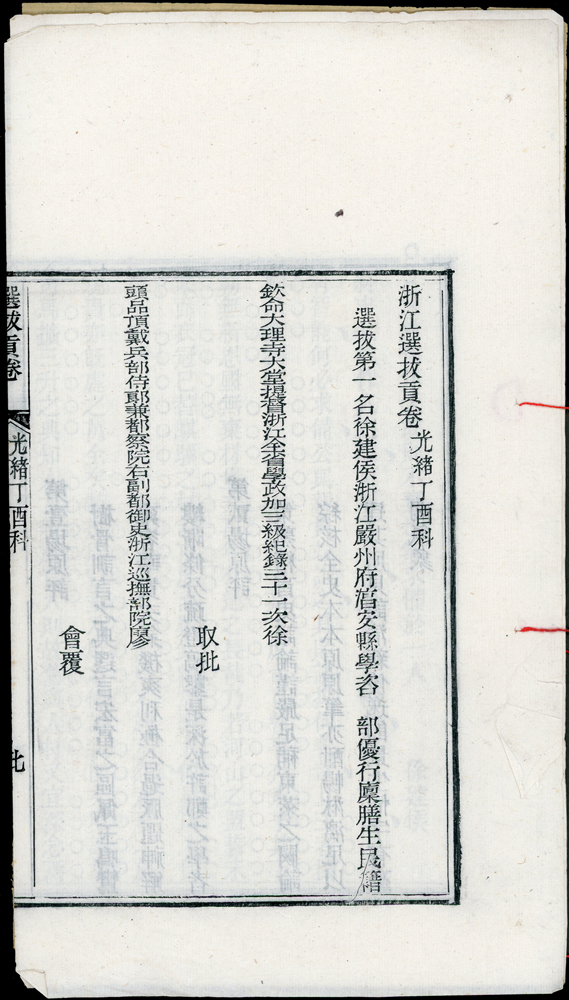 浙江選拔貢卷光緒丁酉科
選拔第一名徐建侯浙江嚴州府淳安縣學咨 部優行廩膳生民籍
欽命大理寺大堂提督浙江全省學政加三級紀錄三十一次徐
取批
頭品頂戴兵部侍郎兼都察院右副都御史浙江巡撫部院廖
會覆
選拔貢卷 光緒丁酉科